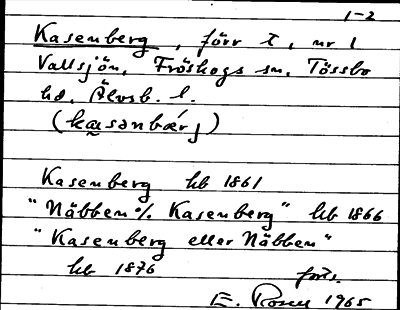 1-2
Kasenberg, förr t, nr 1
Vallsjön, Fröskogs sn, Tössbo
hd, Älvsb. l.
(kasənbærj)
Kasenberg hb 1861
"Näbben % Kasenberg" hb 1866
"Kasenberg eller Näbben"
hb 1876
forts.
E. Rosell 1965